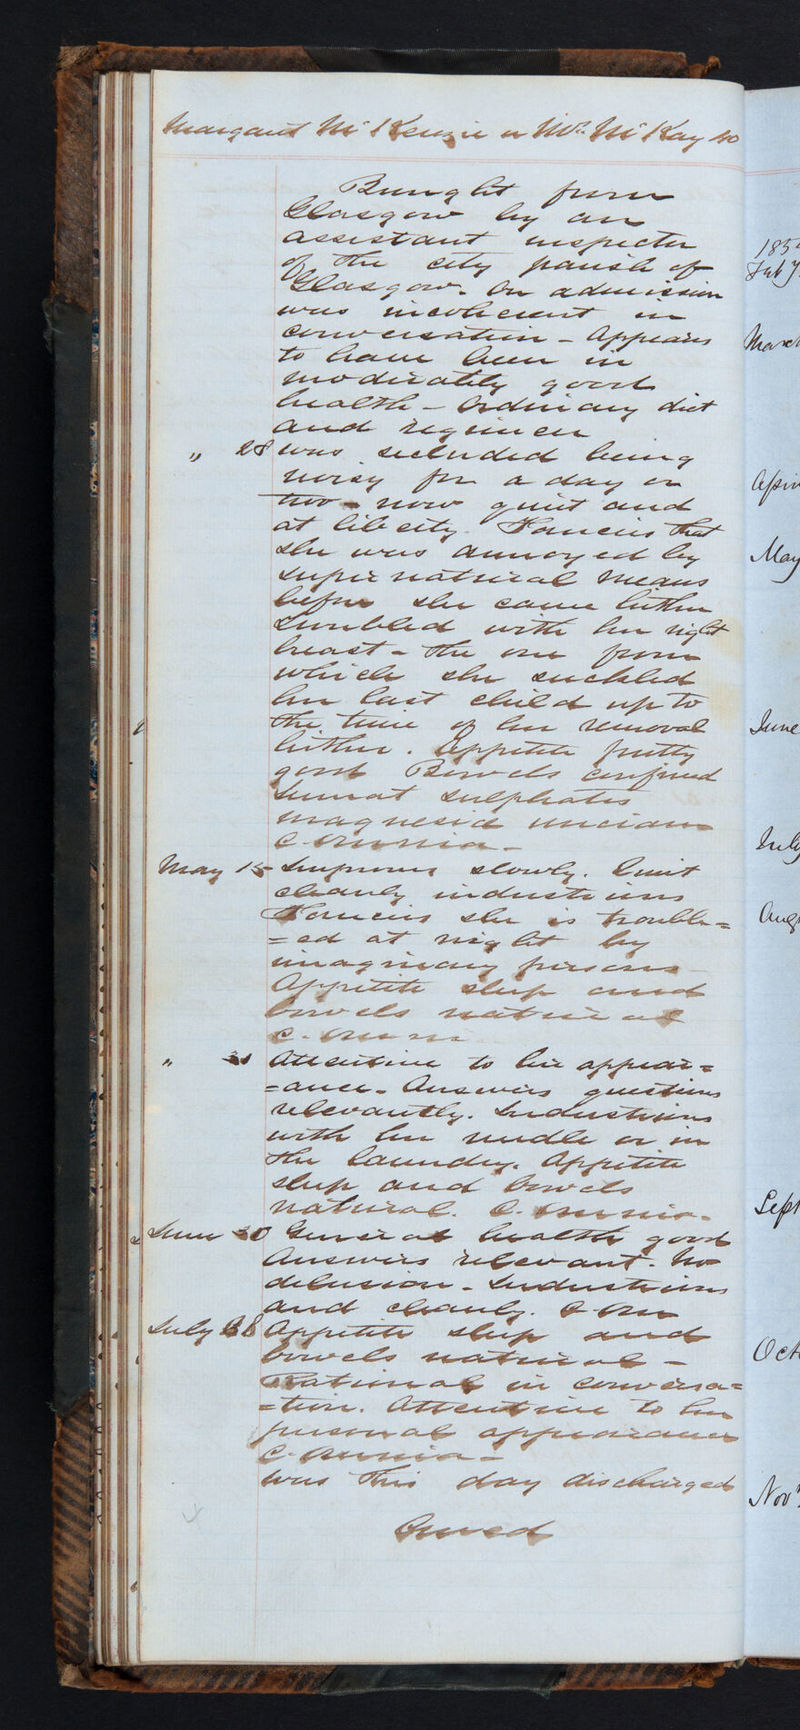 Margaret McKenzie or Mrs. McKay 40
Brought from
Glasgow by an
assistant inspector
of the city parish of
Glasgow. On admission
was incoherent in
conversation - Appears
to have been in
moderately good
health - Ordinary diet
and regimen
" 28 was secluded being
noisy for a day or
two - now quiet and
at liberty. Fancies that
she was annoyed by
supernatural means
before she came hither
troubled with her right
breast - the one from
which she suckled
her last child up to
the time of her removal
hither. Appetite pretty
good Bowels confined
Sumat sulphatis
magnesiae unciam
C. omnia -
May 15 Improves slowly. Quiet
cleanly industrious
Fancies she is trouble=
=ed at night by
imaginary persons
Appetite sleep and
bowels natural
C. omn
" 31 Attentive to her appear=
=ance. Answers questions
relevantly. Industrious
with her needle or in
the laundry. Appetite
sleep and bowels
natural. C. omnia.
June 30 General health good
Answers relevant. No
delusion - Industrious
and cleanly. C. Om
July 28 Appetite sleep and
bowels natural -
Rational in conversa=
=tion. Attentive to her
personal appearance
C. omnia -
was this day discharged
Cured
185
Feby
March
May
June
July
Aug
Sept
Oct
Nov